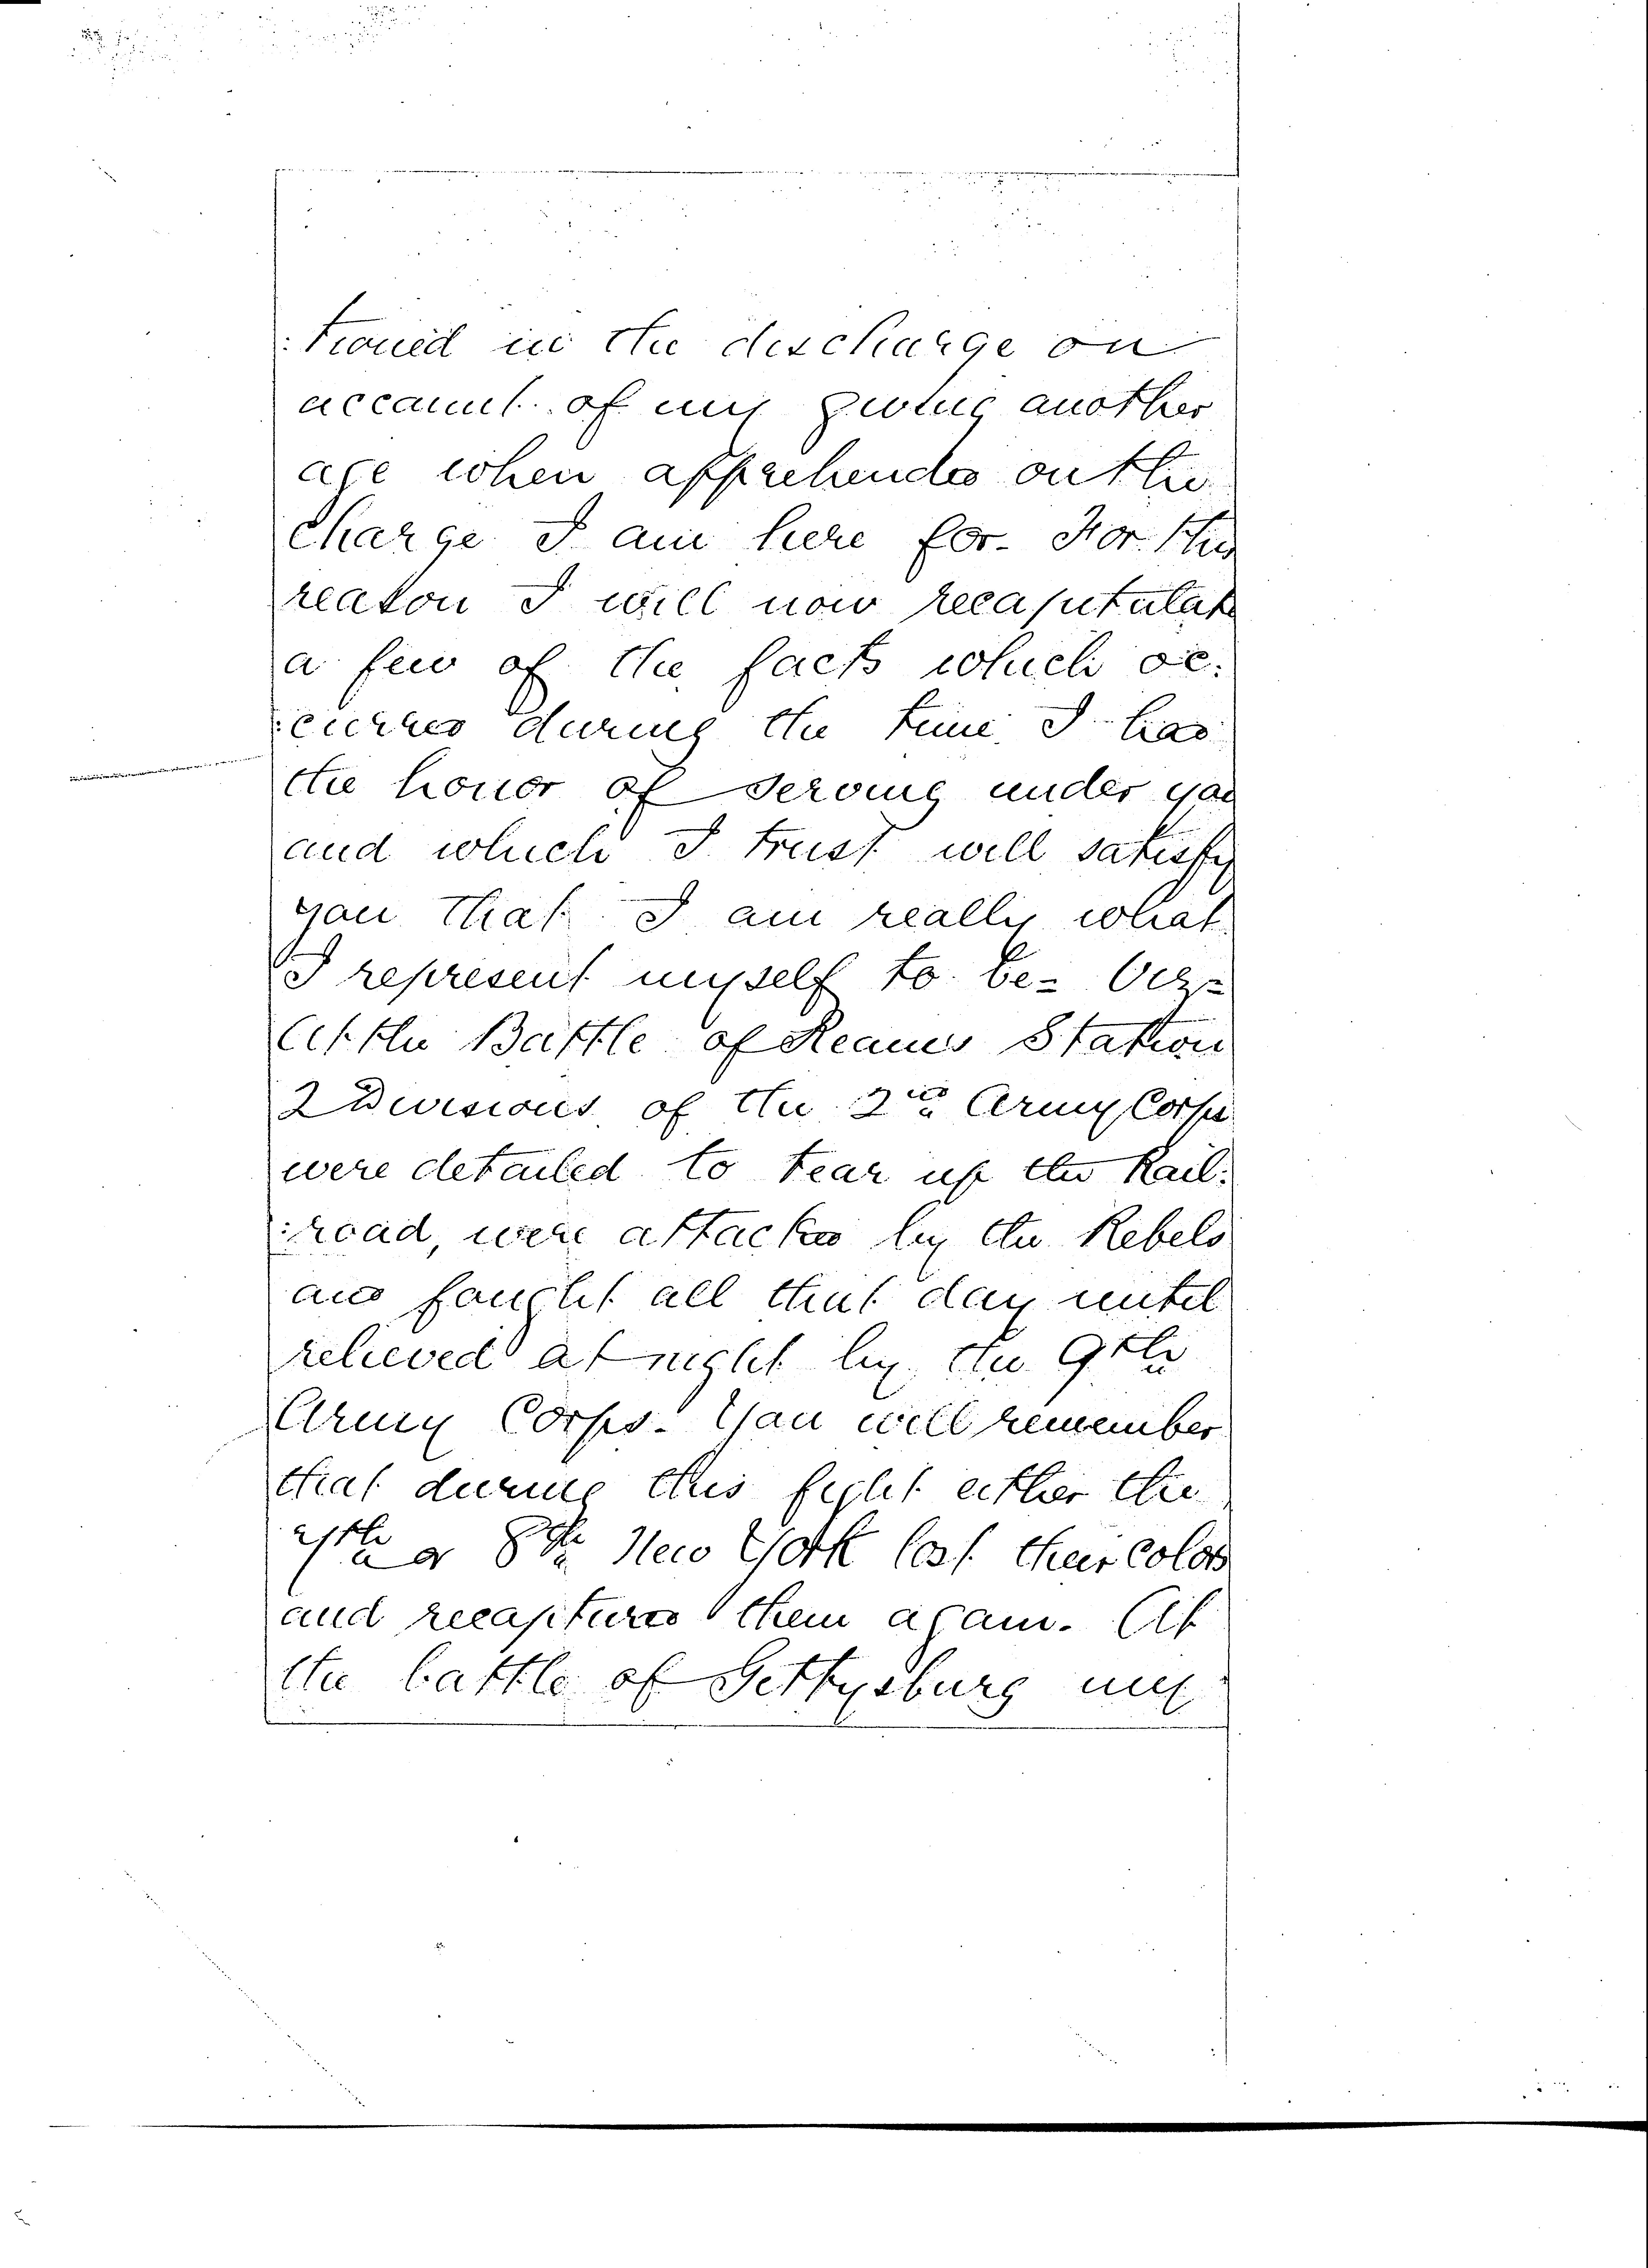 :tioned in the discharge on
account of my giving another
age when apprehended on the
charge I am here for. For this
reason I will now recapitulate
a few of the facts which oc:
:curred during the time I had
the honor of serving under you
and which I trust will satisfy
you that I am really what
I represent myself to be=
At the Battle of Reams Station
2 Divisions of the 2nd Army Corps
were detailed to tear up the Rail:
:road, were attacked by the Rebels
and fought all that day until
relieved at night by the 9th
Army Corps. You will remember
that during this fight either the
7th or 8th New York lost their colors
and recaptured them again. At
the battle of Gettysburg my